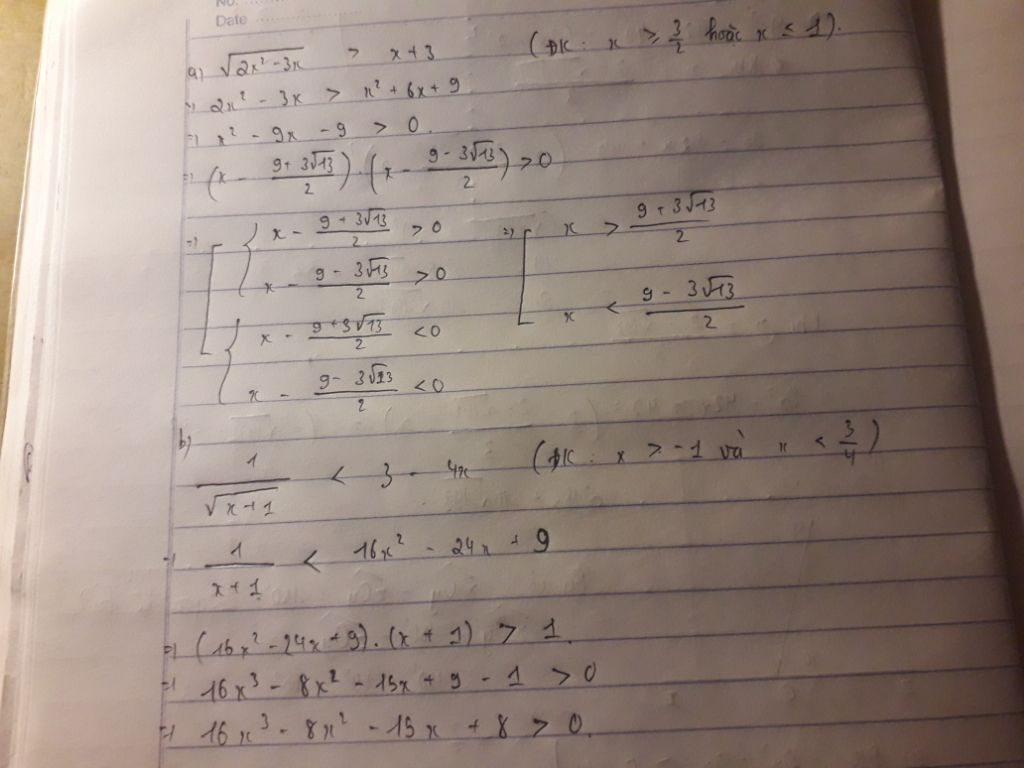 No. ..........
Date ..............
a) √(2x² - 3x) > x + 3 (ĐK: x ≥ 3/2 hoặc x ≤ 1).
=> 2x² - 3x > x² + 6x + 9
=> x² - 9x - 9 > 0.
=> (x - (9 + 3√13)/2) . (x - (9 - 3√13)/2) > 0
=> [ { x - (9 + 3√13)/2 > 0 => [ x > (9 + 3√13)/2
x - (9 - 3√13)/2 > 0
{ x - (9 + 3√13)/2 < 0 x < (9 - 3√13)/2
x - (9 - 3√13)/2 < 0
b) 1/√(x + 1) < 3 - 4x (ĐK: x > -1 và x < 3/4)
=> 1/(x + 1) < 16x² - 24x + 9
=> (16x² - 24x + 9) . (x + 1) > 1.
=> 16x³ - 8x² - 15x + 9 - 1 > 0
=> 16x³ - 8x² - 15x + 8 > 0.